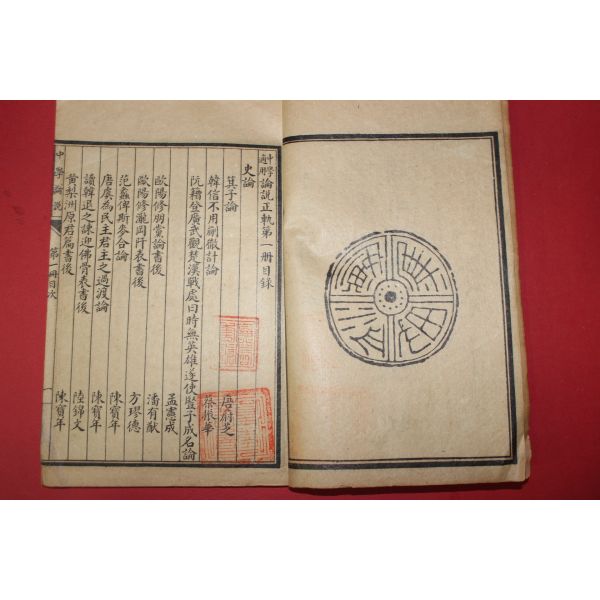 中學論說正軌第一冊目錄
史論
箕子論 唐蔚芝
韓信不用蒯徹計論 蔡振華
阮籍登廣武觀楚漢戰處曰時無英雄遂使豎子成名論
歐陽修朋黨論書後 孟憲成
歐陽修瀧岡阡表書後 潘有猷
范蠡俾斯麥合論 方璆德
唐虞為民主君主之過渡論 陳寶年
讀韓退之諫迎佛骨表書後 陳寶年
黃梨洲原君篇書後 陸錦文
陳寶年
中學論說
第一冊目次
一